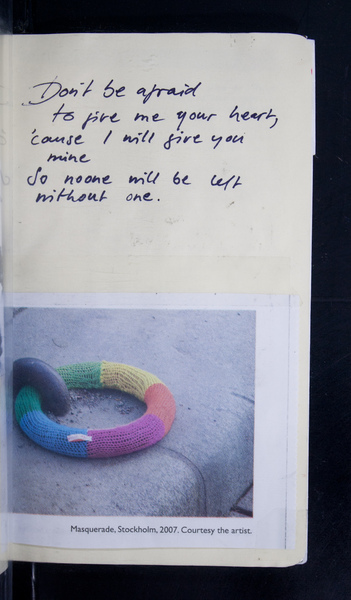 Don't be afraid
to give me your heart,
'cause I will give you
mine
So noone will be left
without one.
Masquerade, Stockholm, 2007. Courtesy the artist.